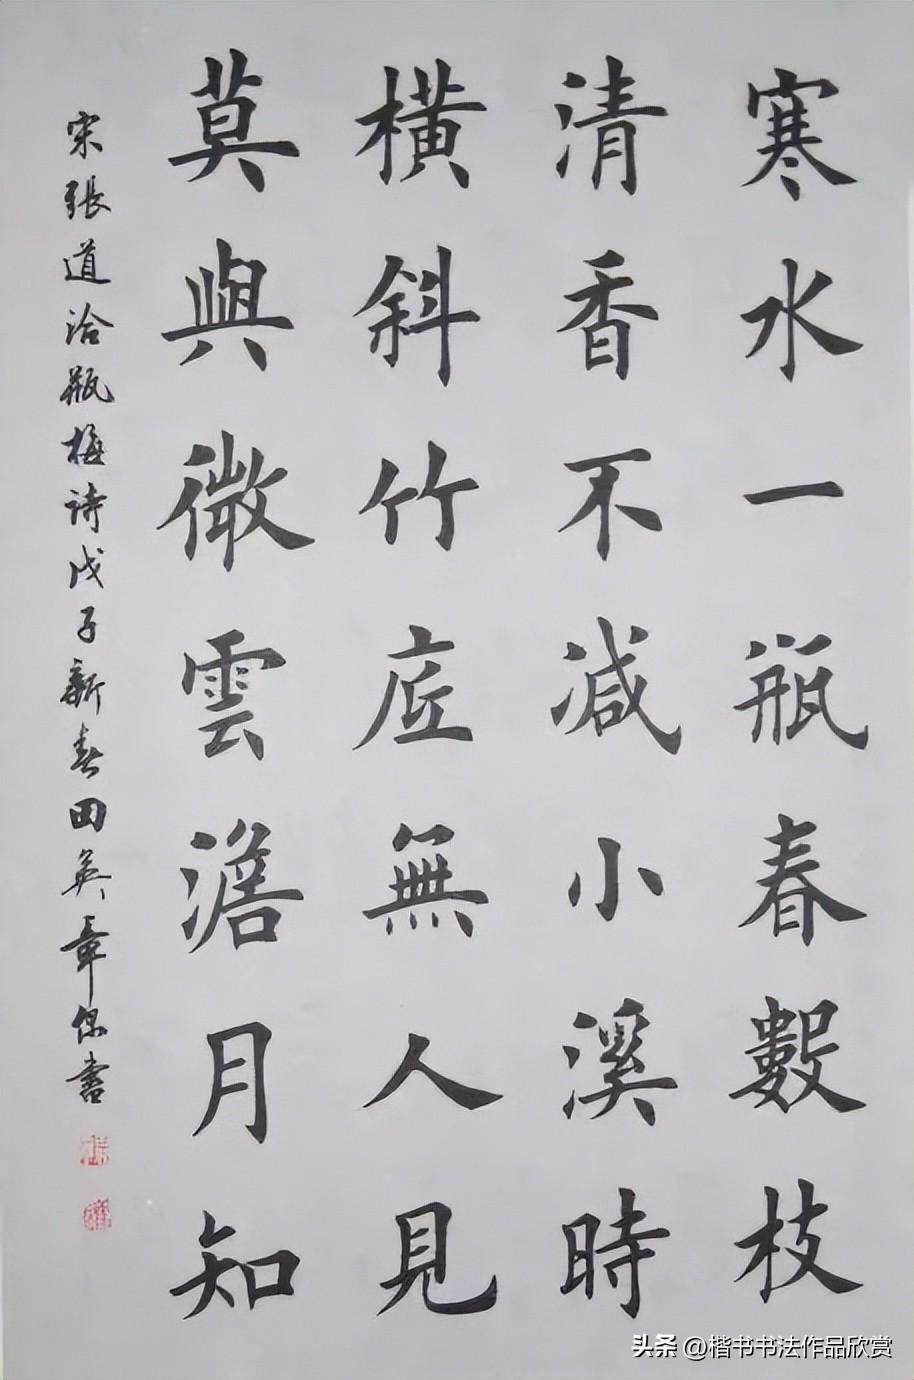 寒水一瓶春數枝
清香不減小溪時
橫斜竹底無人見
莫與微雲澹月知
宋張道洽瓶梅诗戊子新春田英章保書
头条 @楷书书法作品欣赏